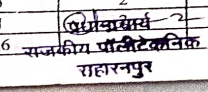 प्रधानाचार्य 2
6 राजकीय पॉलीटेकनिक
सहारनपुर